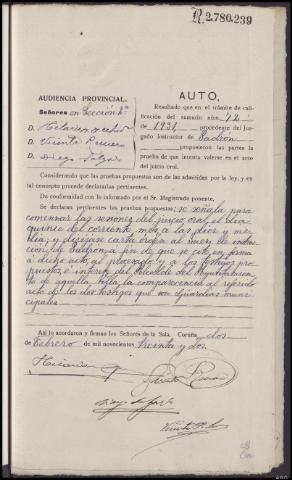 R.2.780.239
AUDIENCIA PROVINCIAL.
Señores en Sección 2ª
D. Hilarion
D. Vicente
D. Diego
AUTO.
Resultado que en el trámite de cali-
ficación del sumario núm. 42
de 1931, procedente del Juz-
gado instructor de Padrón
propusieron las partes la
prueba de que intenta valerse en el acto
del juicio oral.
Considerando que las pruebas propuestas son de las admisibles por la ley, y en
tal concepto procede declararlas pertinentes.
De conformidad con lo informado por el Sr. Magistrado ponente,
Se declaran pertinentes las pruebas propuestas: se señala para
comenzar las sesiones del juicio oral el día
quince del corriente mes a las diez y me-
dia, y diríjase carta orden al Juez de instruc-
ción de Padrón a fin de que se cite en forma
a dicho acto al procesado y a los testigos pro-
puestos e interese del Alcalde del Ayuntamien-
to de aquella villa la comparecencia al referido
acto de los dos testigos que son Guardias muni-
cipales
Así lo acordaron y firman los Señores de la Sala, Coruña dos
de Febrero de mil novecientos treinta y dos